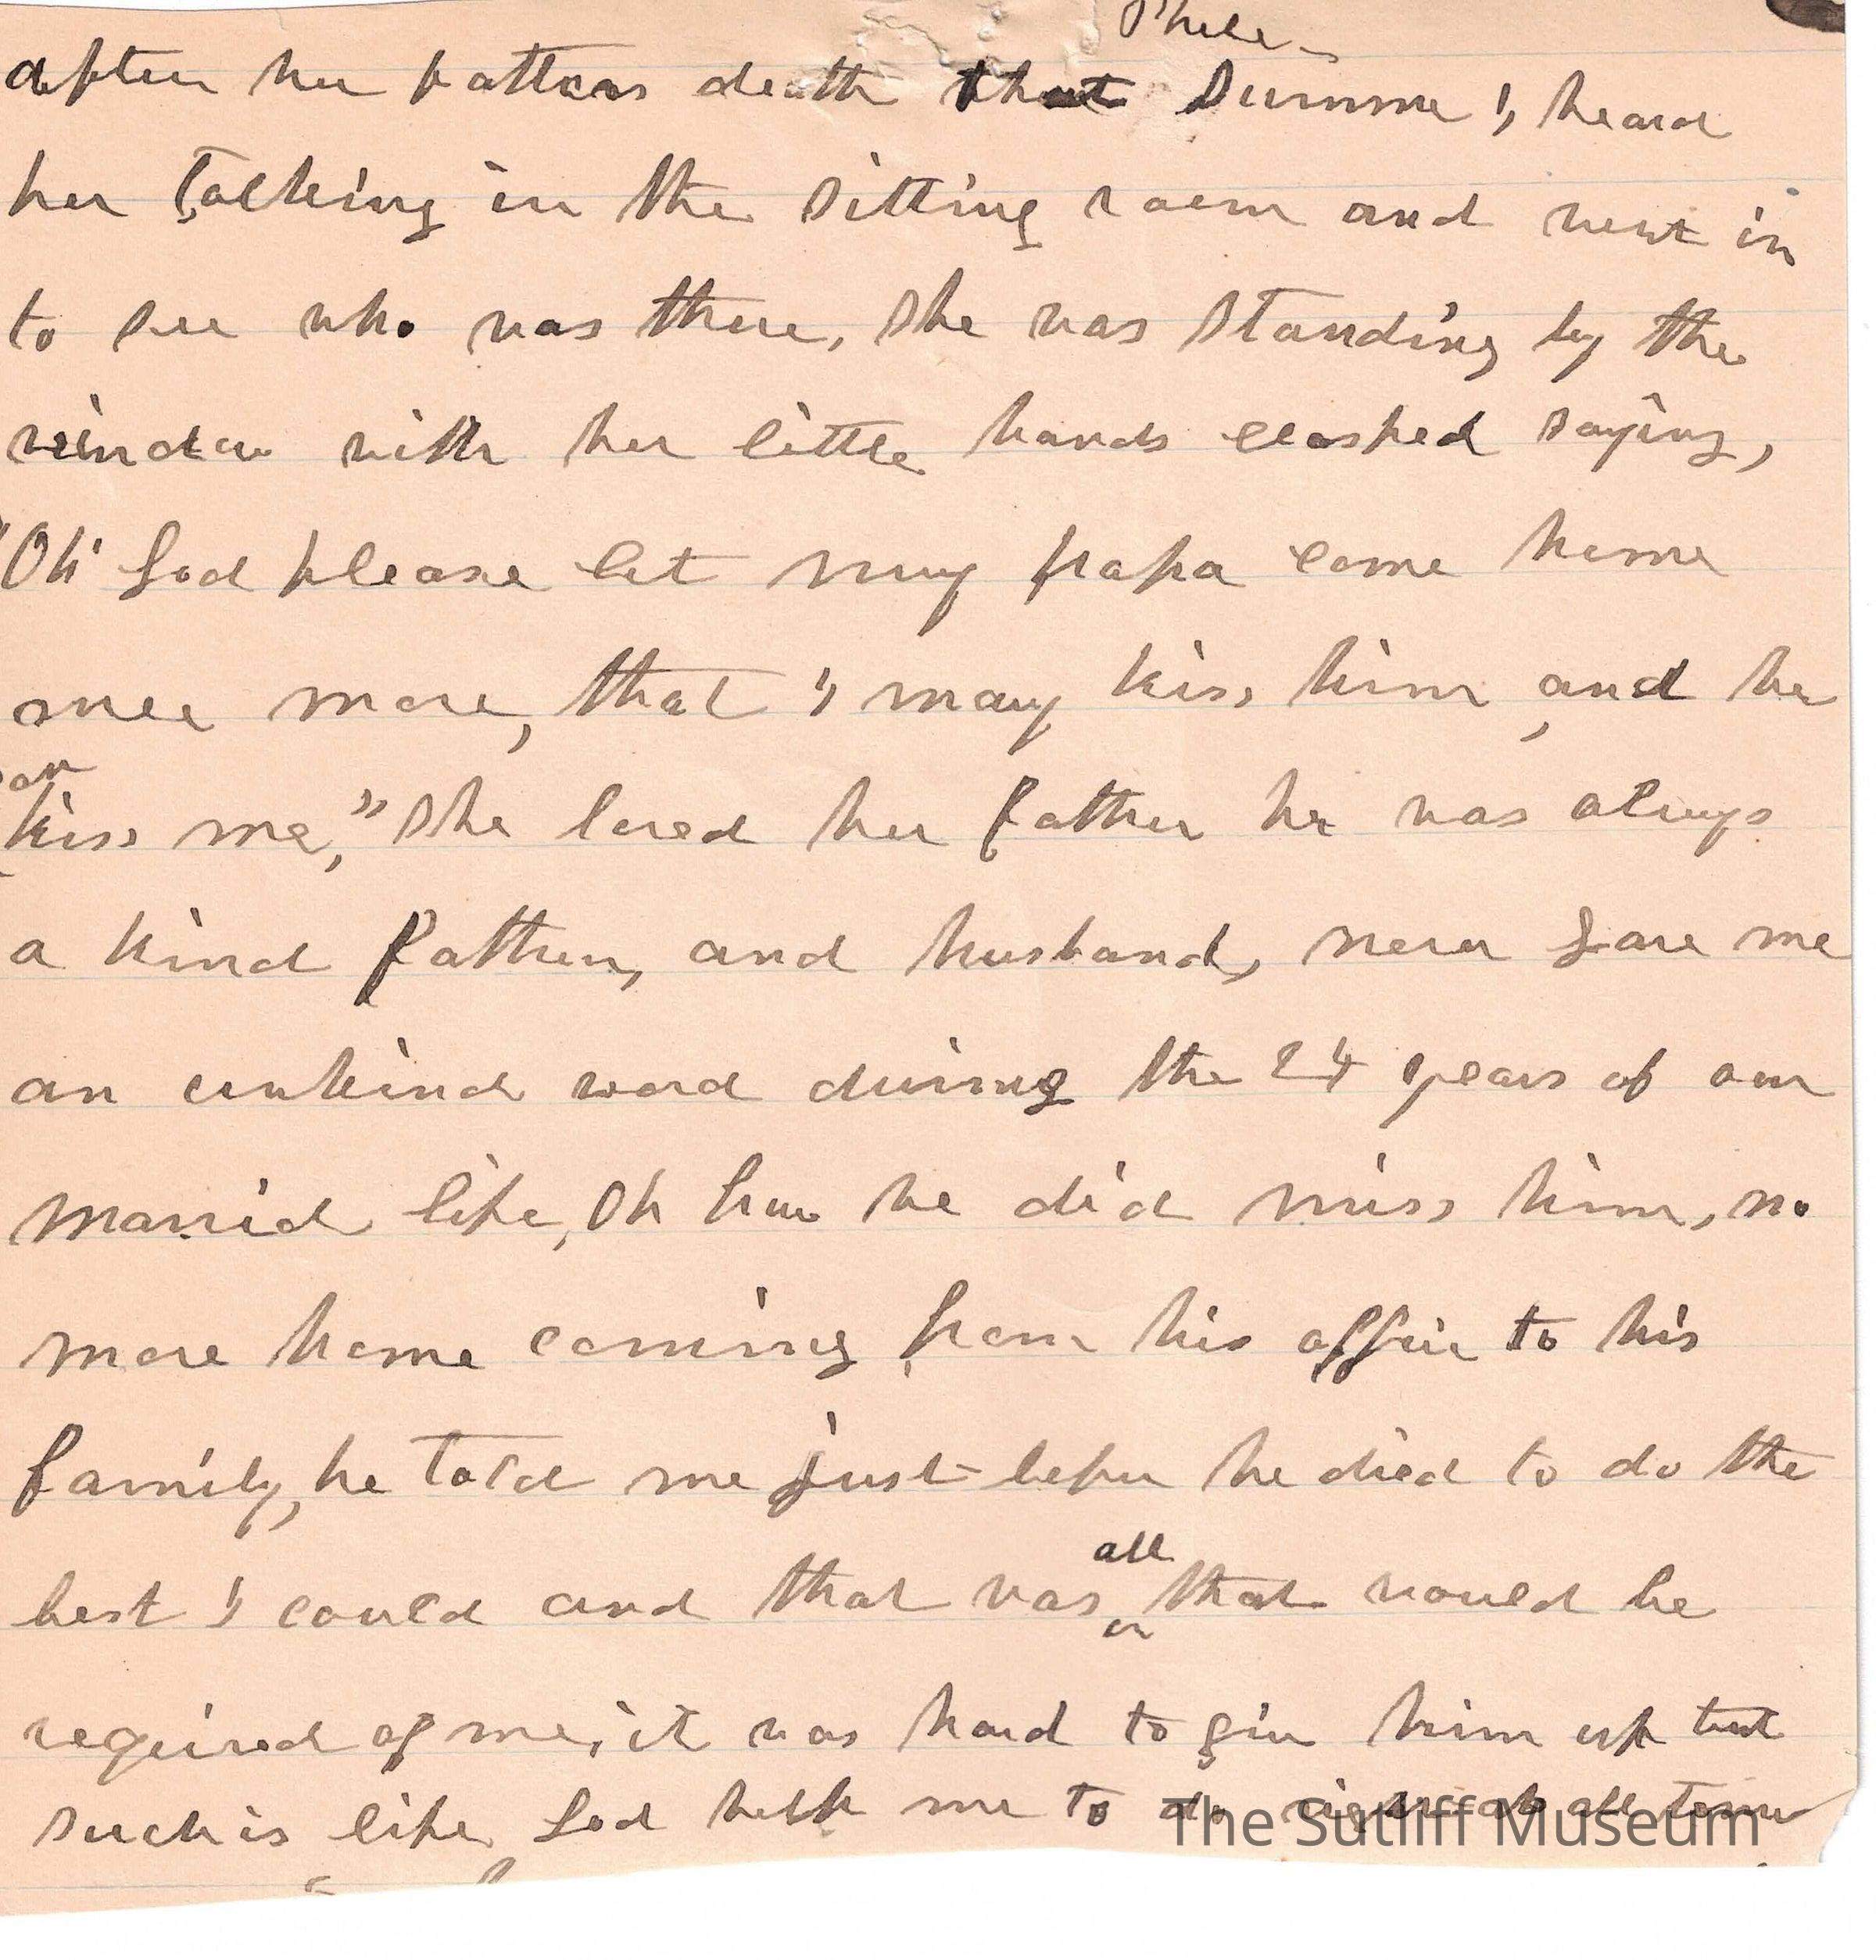 after her fathers death that Summer I, heard
her talking in the sitting room and went in
to see who was there, She was standing by the
window with her little hands clasped saying,
"Oh God please let my papa come home
once more, that I may kiss him and he
kiss me," She loved her father he was always
a kind father, and husband, never gave me
an unkind word during the 24 years of our
married life, Oh how we did miss him, no
more home coming from his office to his
family, he told me just before he died to do the
all
best I could and that was that would be
required of me, it was hard to give him up but
such is life God help me to do right at all times
The Sutliff Museum